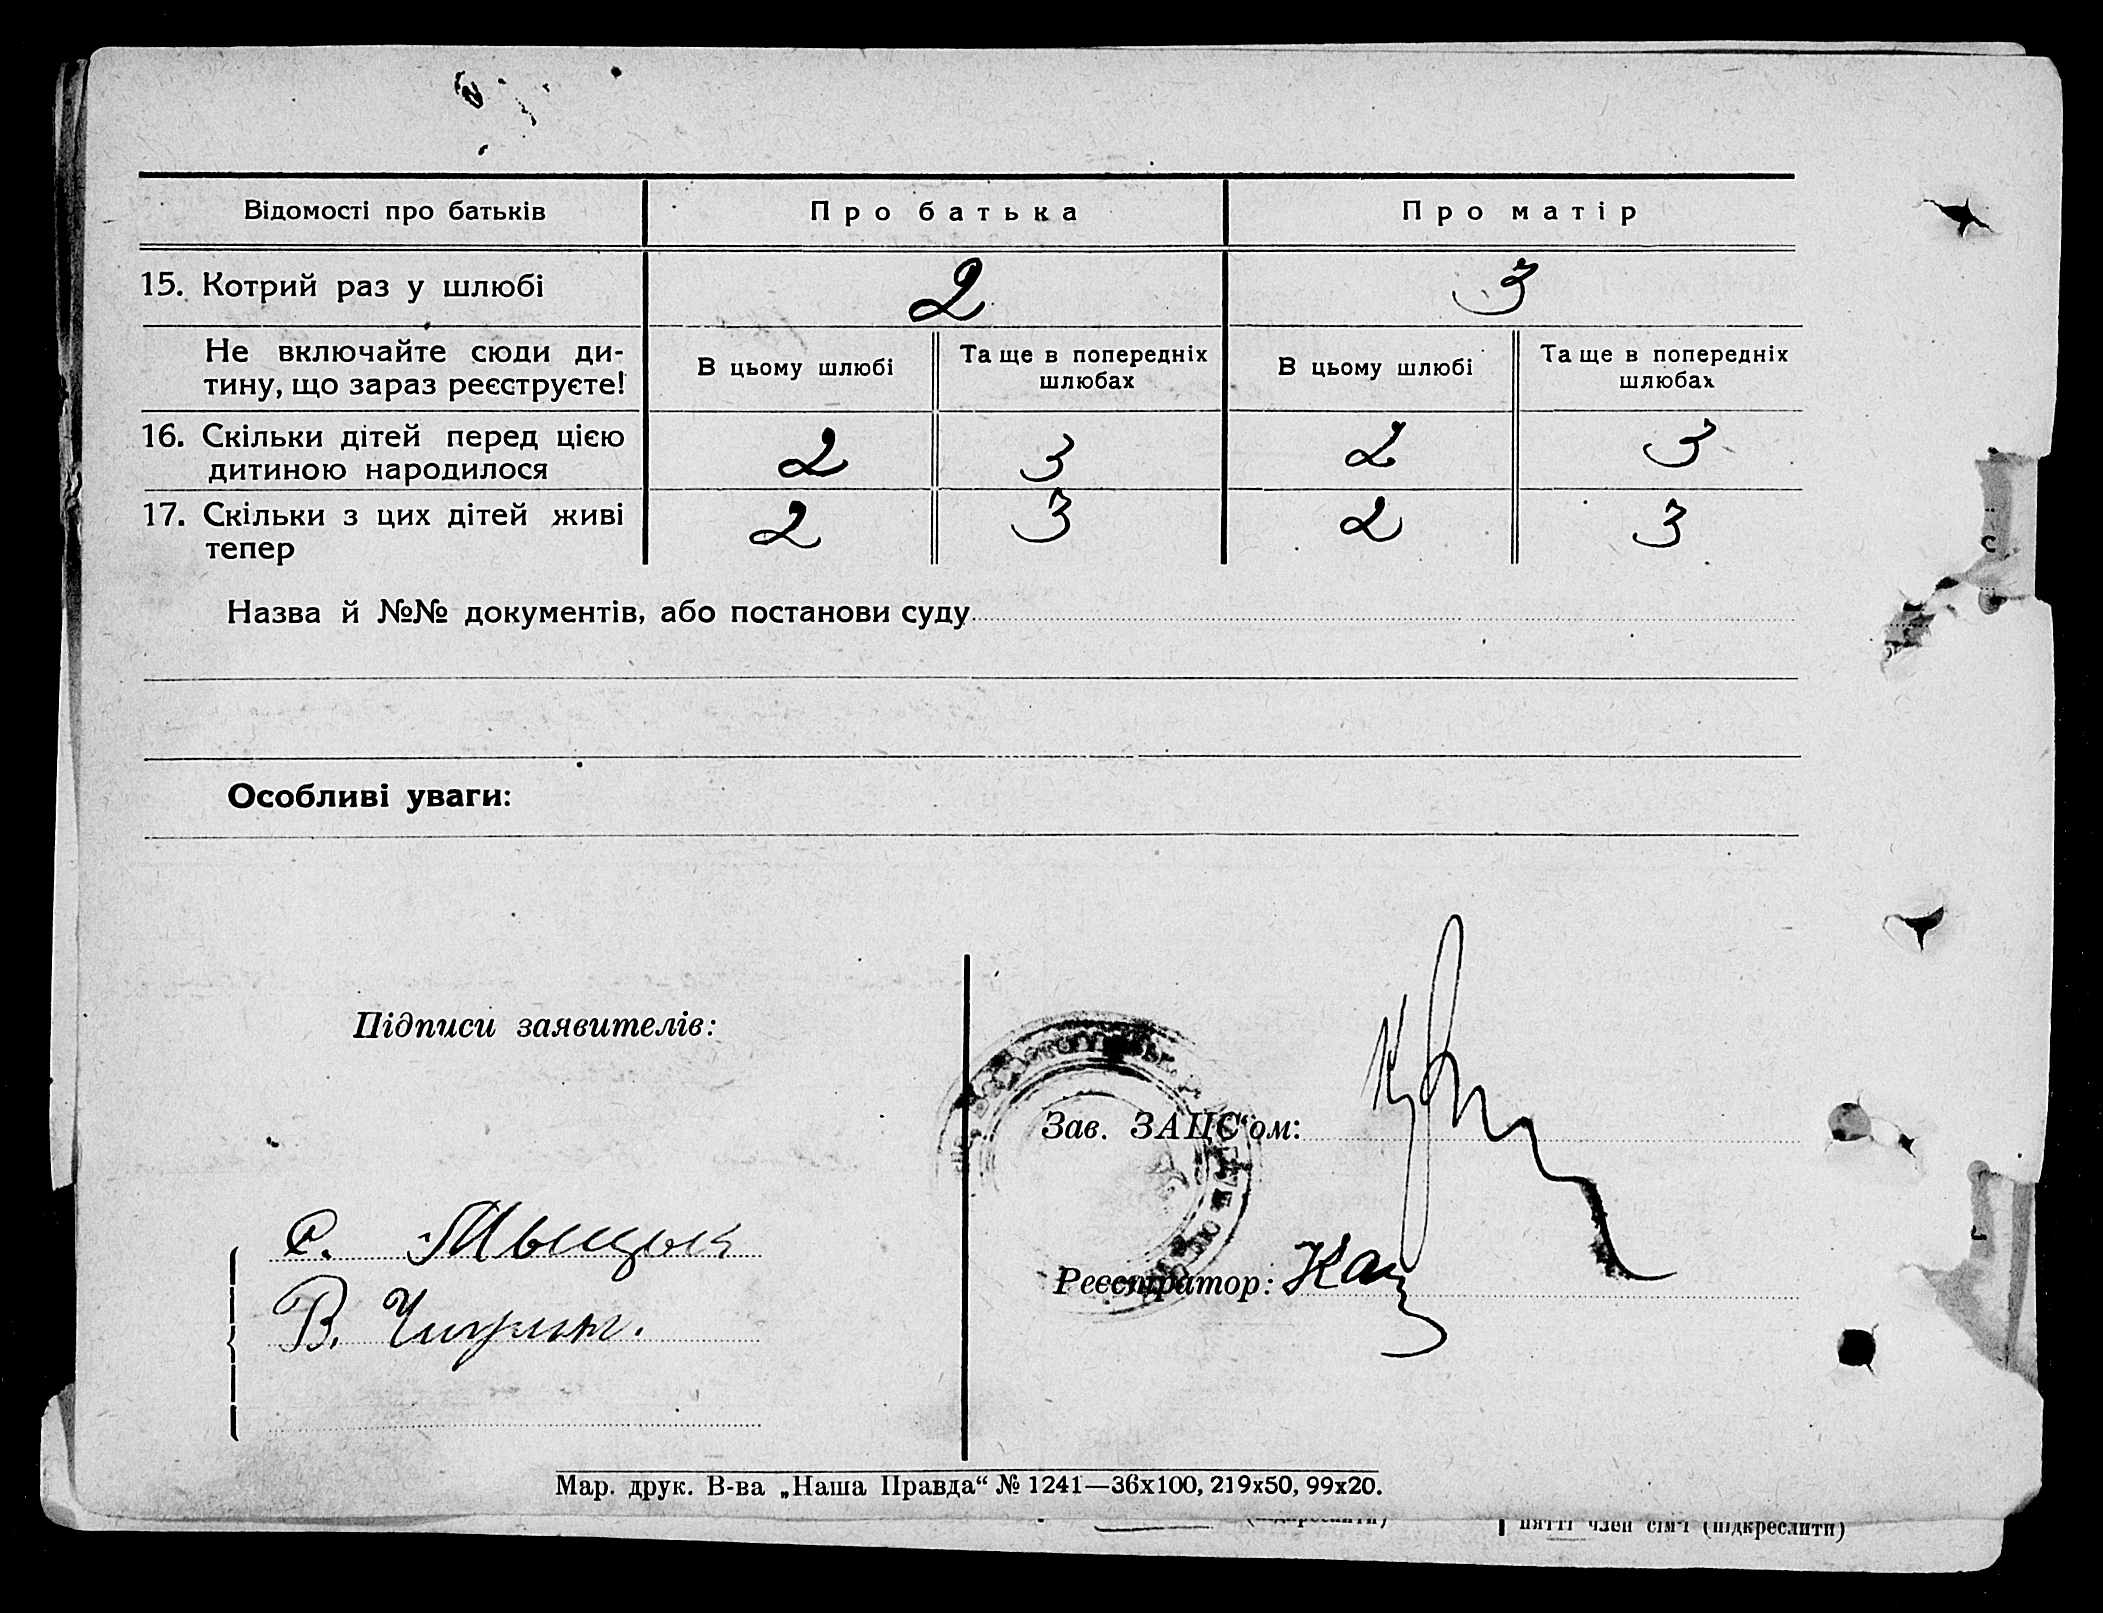 Відомості про батьків
Про батька
Про матір
15. Котрий раз у шлюбі
2
3
Не включайте сюди ди-
тину, що зараз реєструєте!
В цьому шлюбі
Та ще в попередніх
шлюбах
В цьому шлюбі
Та ще в попередніх
шлюбах
16. Скільки дітей перед цією
дитиною народилося
2
3
2
3
17. Скільки з цих дітей живі
тепер
2
3
2
3
Назва й №№ документів, або постанови суду
Особливі уваги:
Підписи заявителів:
Зав. ЗАЦС‘ом:
С.
В.
Реєстратор:
Мар. друк. В-ва „Наша Правда“ № 1241—36х100, 219х50, 99х20.
член сім'ї (підкреслити)